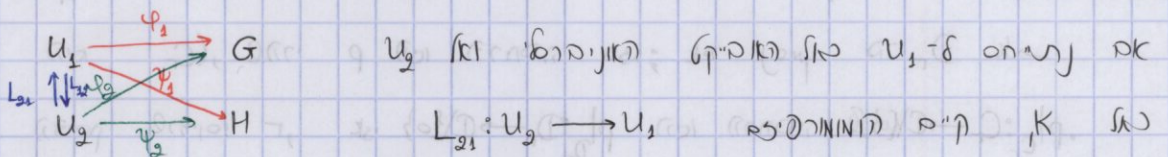 אם נתייחס ל-U₁ כאל האובייקט האוניברסלי ואל U₂
כאל K, קיים הומומורפיזם L₂₁ : U₂ ⟶ U₁
U₁ φ₁ G
L₂₁ L₁₂ φ₂ ψ₁
U₂ ψ₂ H